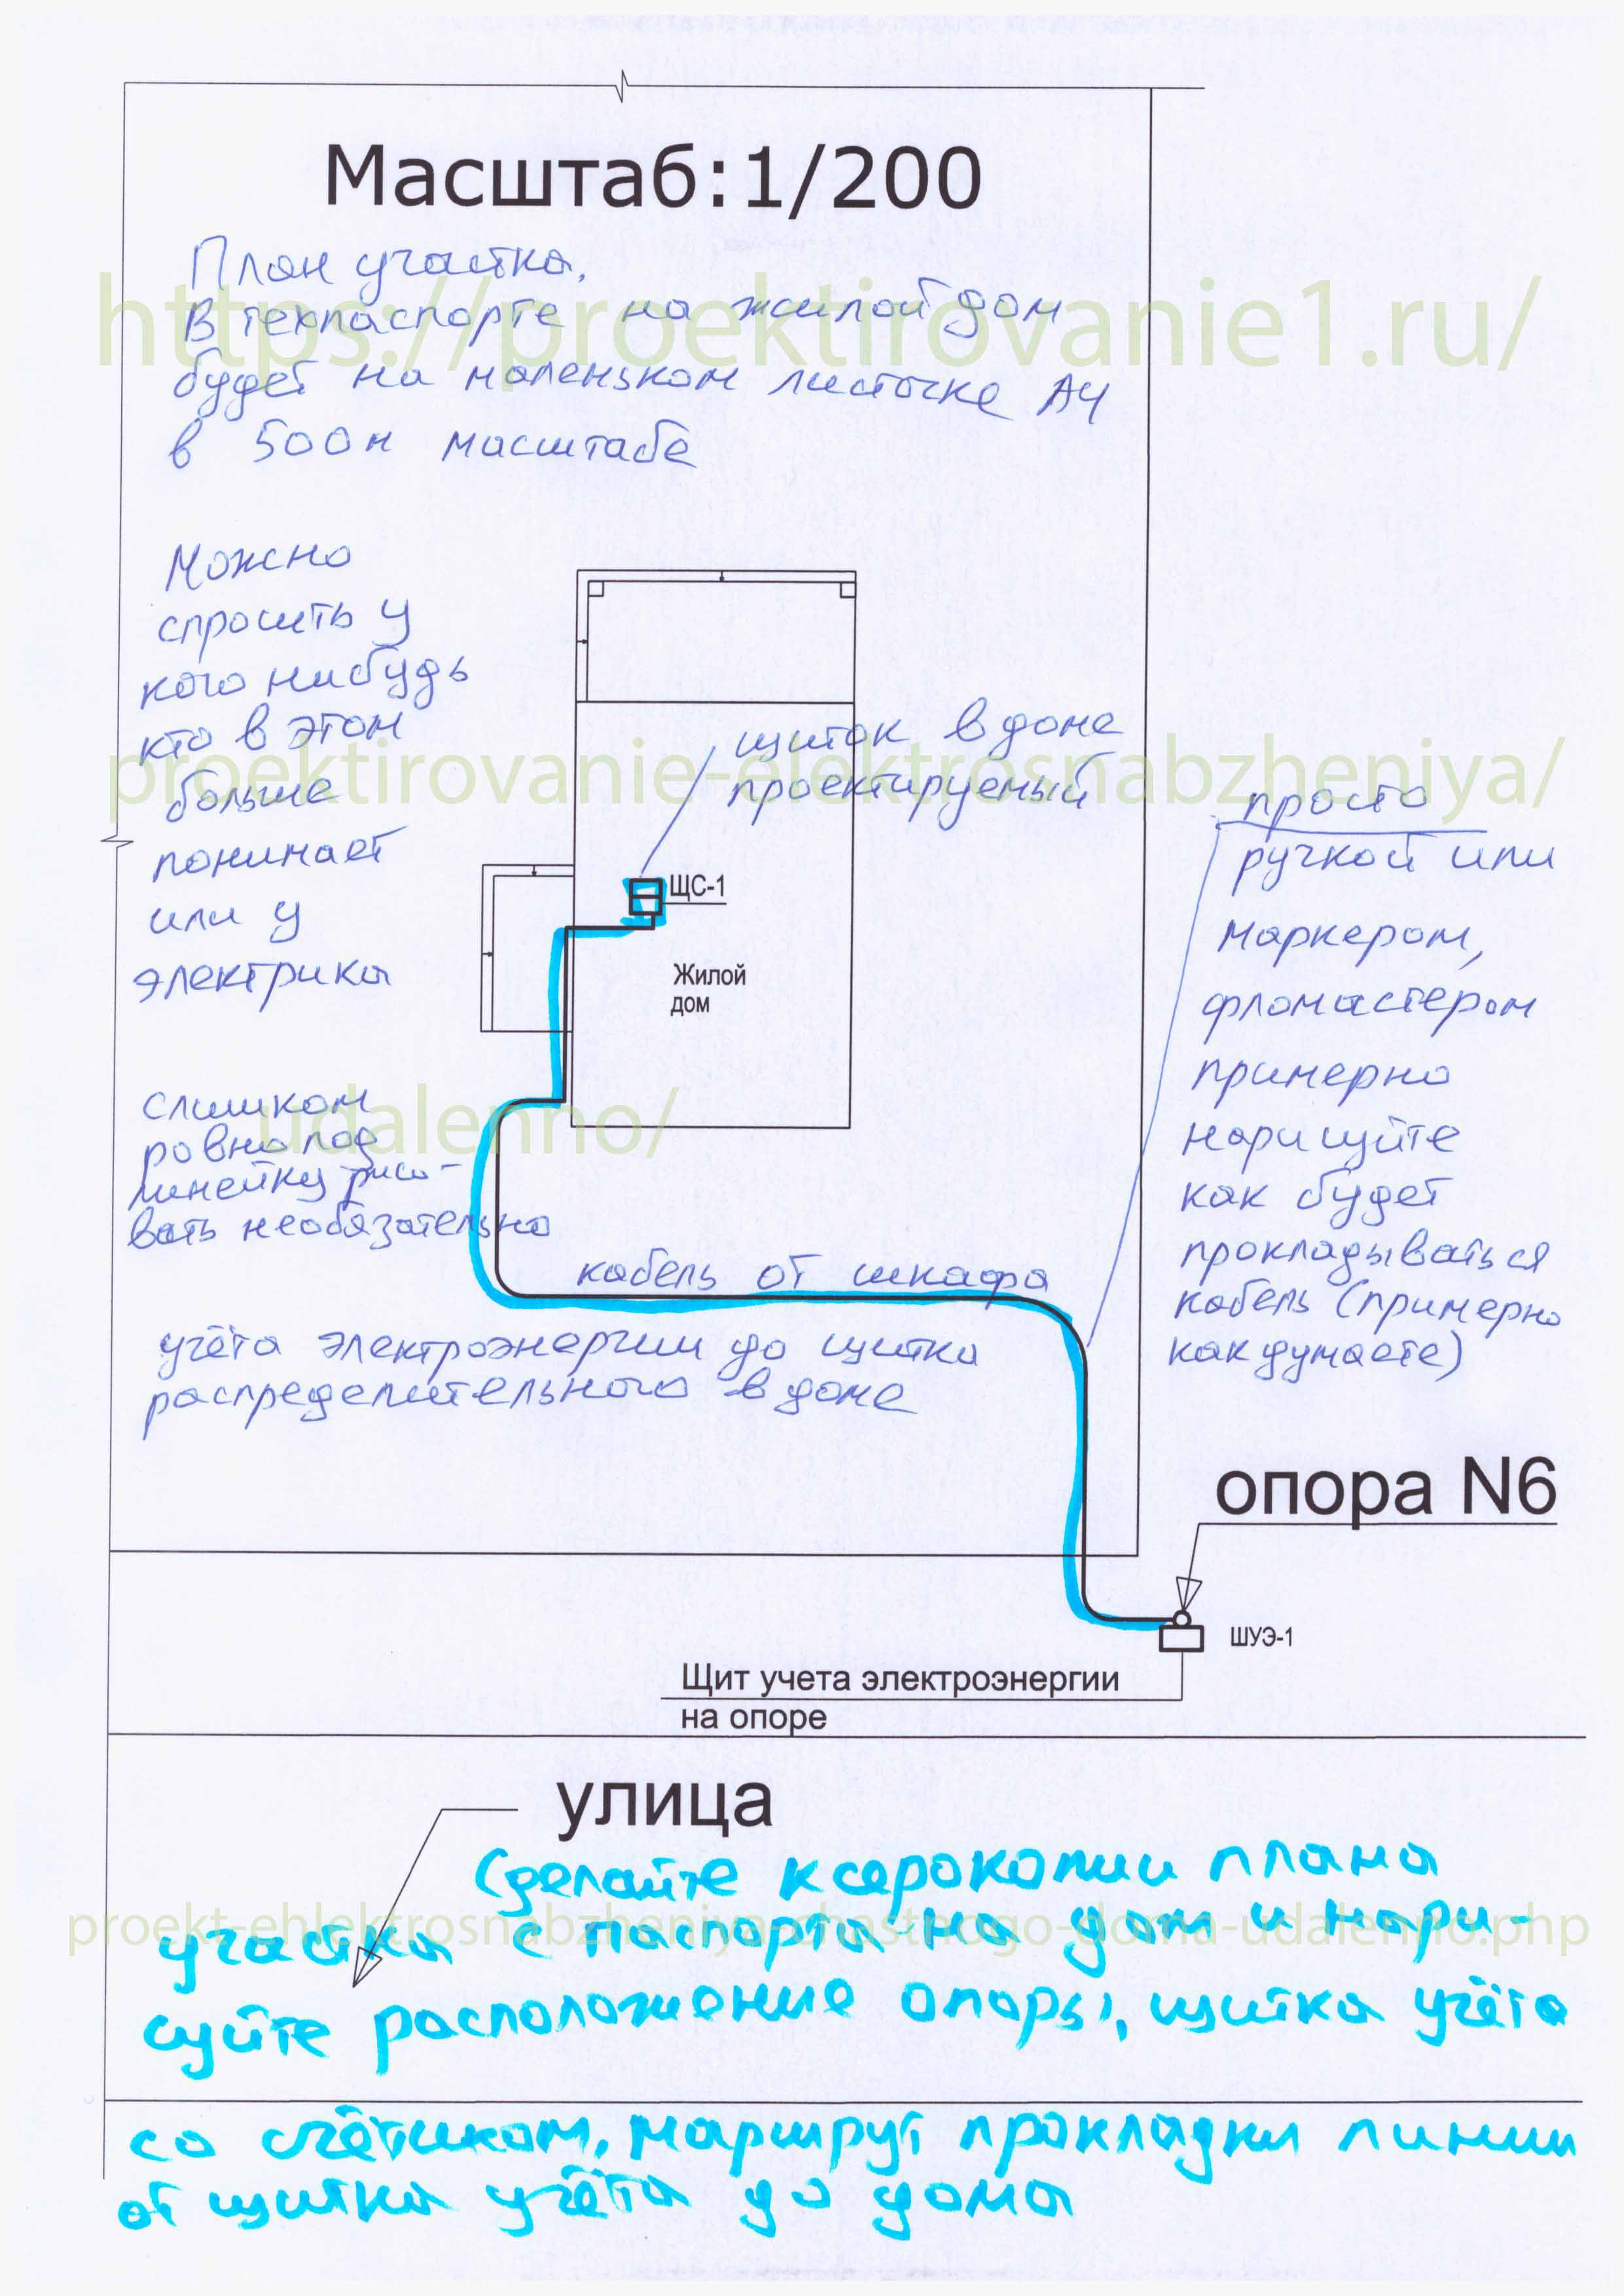 Масштаб:1/200
План участка.
В техпаспорте на жилой дом
https://proektirovanie1.ru/
будет на маленьком листочке А4
в 500м масштабе
Можно
спросить у
кого нибудь
кто в этом
больше
понимает
или у
электрика
щиток в доме
проектируемый
proektirovanie-elektrosnabzheniya/
просто
ручкой или
маркером,
фломастером
примерно
нарисуйте
как будет
прокладываться
кабель (примерно
как думаете)
ЩС-1
Жилой
дом
слишком
ровно под
линейку рисо-
вать необязательно
udalenno/
кабель от шкафа
учёта электроэнергии до щитка
распределительного в доме
опора N6
ШУЭ-1
Щит учета электроэнергии
на опоре
улица
Сделайте ксерокопии плана
участка с паспорта на дом и нари-
proekt-ehlektrosnabzheniya-chastnogo-doma-udalenno.php
суйте расположение опоры, щитка учёта
со счётчиком, маршрут прокладки линии
от щитка учёта до дома